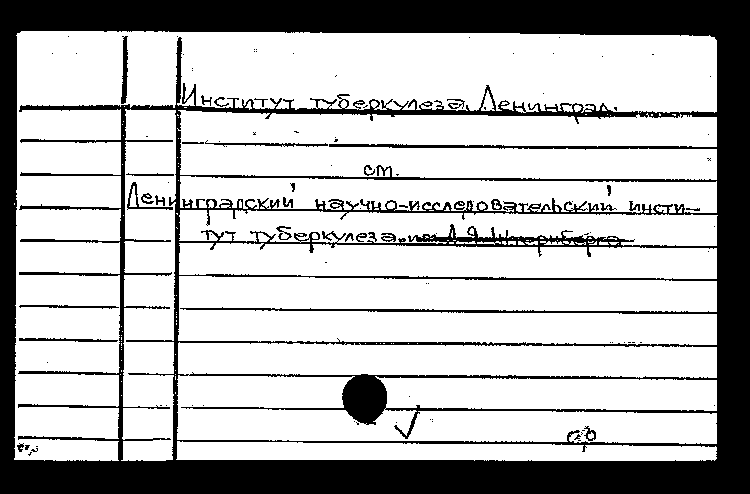 Институт туберкулеза, Ленинград.
см.
Ленинградский научно-исследовательский инсти-
тут туберкулеза. им. А.Я. Штернберга